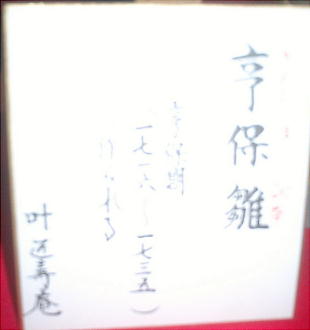 享保雛
享保期
(一七一六〜一七三五)
作られる
叶匠寿庵